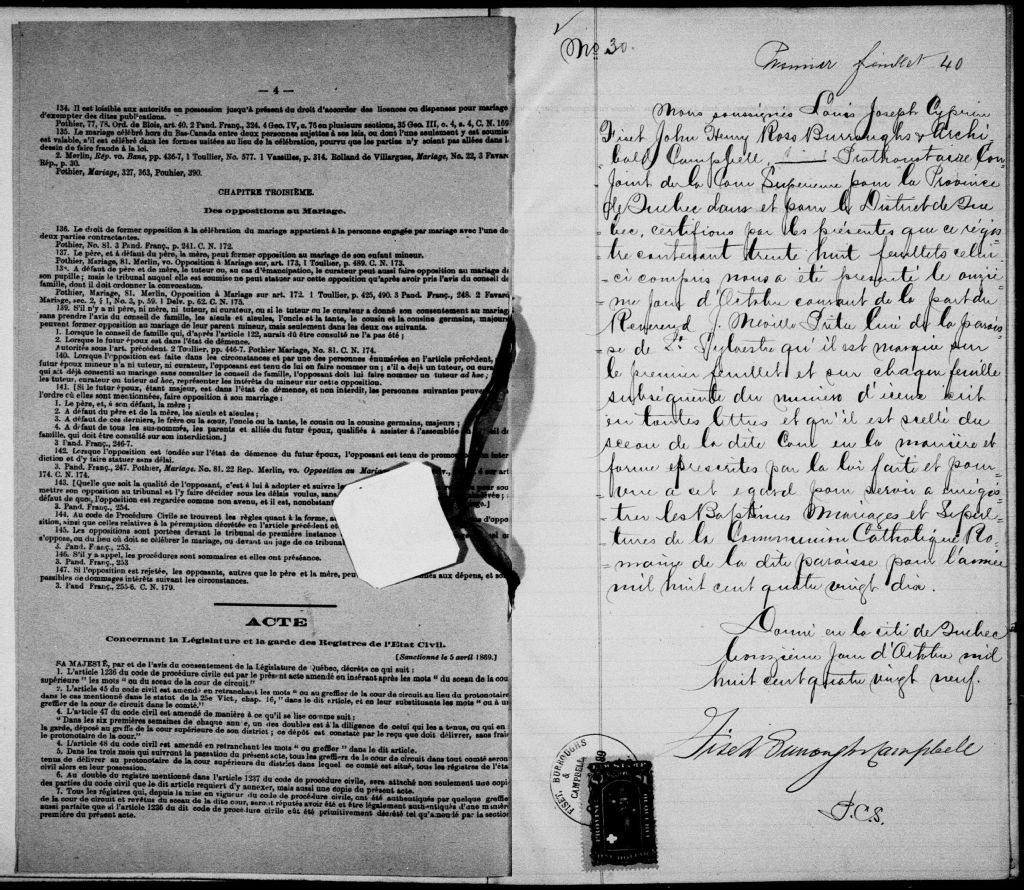 — 4 —
134. Il est loisible aux autorités en possession jusqu'à présent du droit d'accorder des licences ou dispenses pour mariage
d'exempter des dites publications.
Pothier, 77, 78. Ord. de Blois, art. 40. 2 Pand. Franç., 324. 4 Geo. IV, c. 76 en plusieurs sections, 35 Geo. III, c. 4, s. 4, C. N. 169
135. Le mariage célébré hors du Bas-Canada entre deux personnes sujettes à ses lois, ou dont l'une seulement y est soumise
est valable, s'il est célébré dans les formes usitées au lieu de la célébration, pourvu que les parties n'y soient pas allées dans l
dessein de faire fraude à la loi.
2. Merlin, Rép. vo. Bans, pp. 436-7, 1 Toullier, No. 577. 1 Vassilles, p. 314. Rolland de Villargues, Mariage, No. 22, 3 Favard
Rép., p. 30.
Pothier, Mariage, 327, 363, Pouhier, 390.
CHAPITRE TROISIÈME.
Des oppositions au Mariage.
136. Le droit de former opposition à la célébration du mariage appartient à la personne engagée par mariage avec l'une de
deux parties contractantes.
Pothier, No. 81. 3 Pand. Franç., p. 241. C. N. 172.
137. Le père, et à défaut du père, la mère, peut former opposition au mariage de son enfant mineur.
Pothier, Mariage, 81. Merlin, vo. Opposition à Mariage sur art. 173, 1 Toullier, p. 489. C. N. 173.
138. A défaut de père et de mère, le tuteur ou, au cas d'émancipation, le curateur peut aussi faire opposition au mariage de
son pupille; mais le tribunal auquel elle est soumise ne peut statuer sur cette opposition qu'après avoir pris l'avis du conseil de
famille, dont il doit ordonner la convocation.
Pothier, Mariage, 81. Merlin, Opposition à Mariage sur art. 172. 1 Toullier, p. 425, 490. 3 Pand. Franç., 248. 2 Favard
Mariage, sec. 2, § 1, No. 3, p. 59. 1 Delv. p. 62. C. N. 175.
139. S'il n'y a ni père, ni mère, ni tuteur, ni curateur, ou si le tuteur ou le curateur a donné son consentement au mariage
sans prendre l'avis du conseil de famille, les aïeuls et aïeules, l'oncle et la tante, le cousin et la cousine germains, majeurs
peuvent former opposition au mariage de leur parent mineur, mais seulement dans les deux cas suivants.
1. Lorsque le conseil de famille qui, d'après l'article 122, aurait dû être consulté ne l'a pas été;
2. Lorsque le futur époux est dans l'état de démence.
Autorités sous l'art. précédent. 2 Toullier, pp. 446-7. Pothier Mariage, No. 81. C. N. 174.
140. Lorsque l'opposition est faite dans les circonstances et par une des personnes énumérées en l'article précédent,
futur époux mineur n'a ni tuteur, ni curateur, l'opposant est tenu de lui en faire nommer un; s'il a déjà un tuteur, ou cura
qui ait déjà consenti au mariage sans consulter le conseil de famille, l'opposant doit lui faire nommer un tuteur ad hoc;
les tuteur, curateur ou tuteur ad hoc, représenter les intérêts du mineur sur cette opposition.
141. [Si le futur époux, étant majeur, est dans l'état de démence, et non interdit, les personnes suivantes peuve
l'ordre où elles sont mentionnées, faire opposition à son mariage:
1. Le père, et, à son défaut, la mère;
2. A défaut du père et de la mère, les aïeuls et aïeules;
3. A défaut de ces derniers, le frère ou la sœur, l'oncle ou la tante, le cousin ou la cousine germains, majeurs;
4. A défaut de tous les sus-nommés, les parents et alliés du futur époux, qualifiés à assister à l'assemblée
famille, qui doit être consulté sur son interdiction.]
3 Pand. Franç., 246-7.
142. Lorsque l'opposition est fondée sur l'état de démence du futur époux, l'opposant est tenu de
diction et d'y faire statuer sans délai.
3. Pand. Franç., 247. Pothier, Mariage. No. 81. 22 Rep. Merlin, vo. Opposition au Mariage
174. C. N. 174.
143. [Quelle que soit la qualité de l'opposant, c'est à lui à adopter et suivre
mettre son opposition au tribunal et l'y faire décider sous les délais voulus, sans
défaut de quoi, l'opposition est regardée comme non avenue, et il est, nonobstant
3. Pand. Franç., 254.
144. Au code de Procédure Civile se trouvent les règles quant à la forme, au
sition, ainsi que celles relatives à la péremption décrétée en l'article précédent
145. Les oppositions sont portées devant le tribunal de première instance
s'oppose, ou du lieu où doit se célébrer le mariage, ou devant un juge de ce tribunal
3. Pand. Franç., 253.
146. S'il y a appel, les procédures sont sommaires et elles ont préséance.
3. Pand. Franç., 253
147. Si l'opposition est rejetée, les opposants, autres que le père et la mère, peu
mnés aux dépens, et so
passibles de dommages intérêts suivant les circonstances.
3. Pand. Franç., 255-6. C. N. 179.
ACTE
Concernant la Législature et la garde des Registres de l'Etat Civil.
[Sanctionné le 5 avril 1869.]
SA MAJESTÉ, par et de l'avis du consentement de la Législature de Québec, décrète ce qui suit:
1. L'article 1236 du code de procédure civile est par le présent acte amendé en insérant après les mots "du sceau de la cour
supérieure" les mots "ou du sceau de la cour de circuit."
2. L'article 45 du code civil est amendé en retranchant les mots "ou au greffier de la cour de circuit au lieu du protonotaire
dans le cas mentionné dans le statut de la 25e Vict., chap. 16," dans le dit article, et en leur substituant les mots "ou à u
greffier de la cour de circuit dans le comté."
4. L'article 47 du code civil est amendé de manière à ce qu'il se lise comme suit:
"Dans les six premières semaines de chaque année, un des doubles est à la diligence de celui qui les a tenus, ou qui en
la garde, déposé au greffe de la cour supérieure de son district; ce dépôt est constaté par le reçu que doit délivrer, sans frais
le protonotaire de la cour."
4. L'article 48 du code civil est amendé en retranchant les mots "ou greffier" dans le dit article.
5. Dans les trois mois qui suivront la passation du présent acte, tous les greffiers de la cour de circuit dans tout comté seront
tenus de délivrer au protonotaire de la cour supérieure du district dans lequel ce comté est situé, tous les registres de l'éta
civil alors en leur possession.
6. Au double du registre mentionné dans l'article 1237 du code de procédure civile, sera attaché non seulement une copi
des parties du code civil que le dit article requiert d'y annexer, mais aussi une copie du présent acte.
7. Tous les registres qui, depuis la mise en vigueur du code de procédure civile, ont été authentiqués par quelque greffie
de la cour de circuit et revêtus du sceau de la dite cour, seront réputés avoir été et être légalement authentiqués d'une manière
aussi parfaite que si l'article 1236 du dit code de procédure civile eût été primitivement décrété tel qu'amendé par la section
première du présent acte.
No 30.
Premier feuillet 40
Nous soussignés Louis Joseph Cyprien
Fiset John Henry Ross Burroughs & Archi
bald Campbell, Prothonotaire Con
joint de la Cour Supérieure pour la Province
de Quebec dans et pour le District de Que
bec, certifions par les présentes que ce régis
tre contenant trente huit feuillets celui
ci compris nous a été présenté le onziè
me jour d'Octobre courant de la part du
Reverend J. Neville Prêtre Curé de la parois
se de St. Sylvestre qu'il est marqué sur
le premier feuillet et sur chaque feuille
subséquente du numéro d'iceux écrit
en toutes lettres et qu'il est scellé du
sceau de la dite Cour en la manière et
forme prescrites par la loi faite et pour
vue à cet égard pour servir à enrégis
trer les Baptêmes Mariages et Sépul
tures de la Communion Catholique Ro
maine de la dite paroisse pour l'année
mil huit cent quatre vingt dix.
Donné en la cité de Quebec
ce onzième jour d'Octobre mil
huit cent quatre vingt neuf.
Fiset Burroughs Campbell
P.C.S.
FISET, BURROUGHS & CAMPBELL